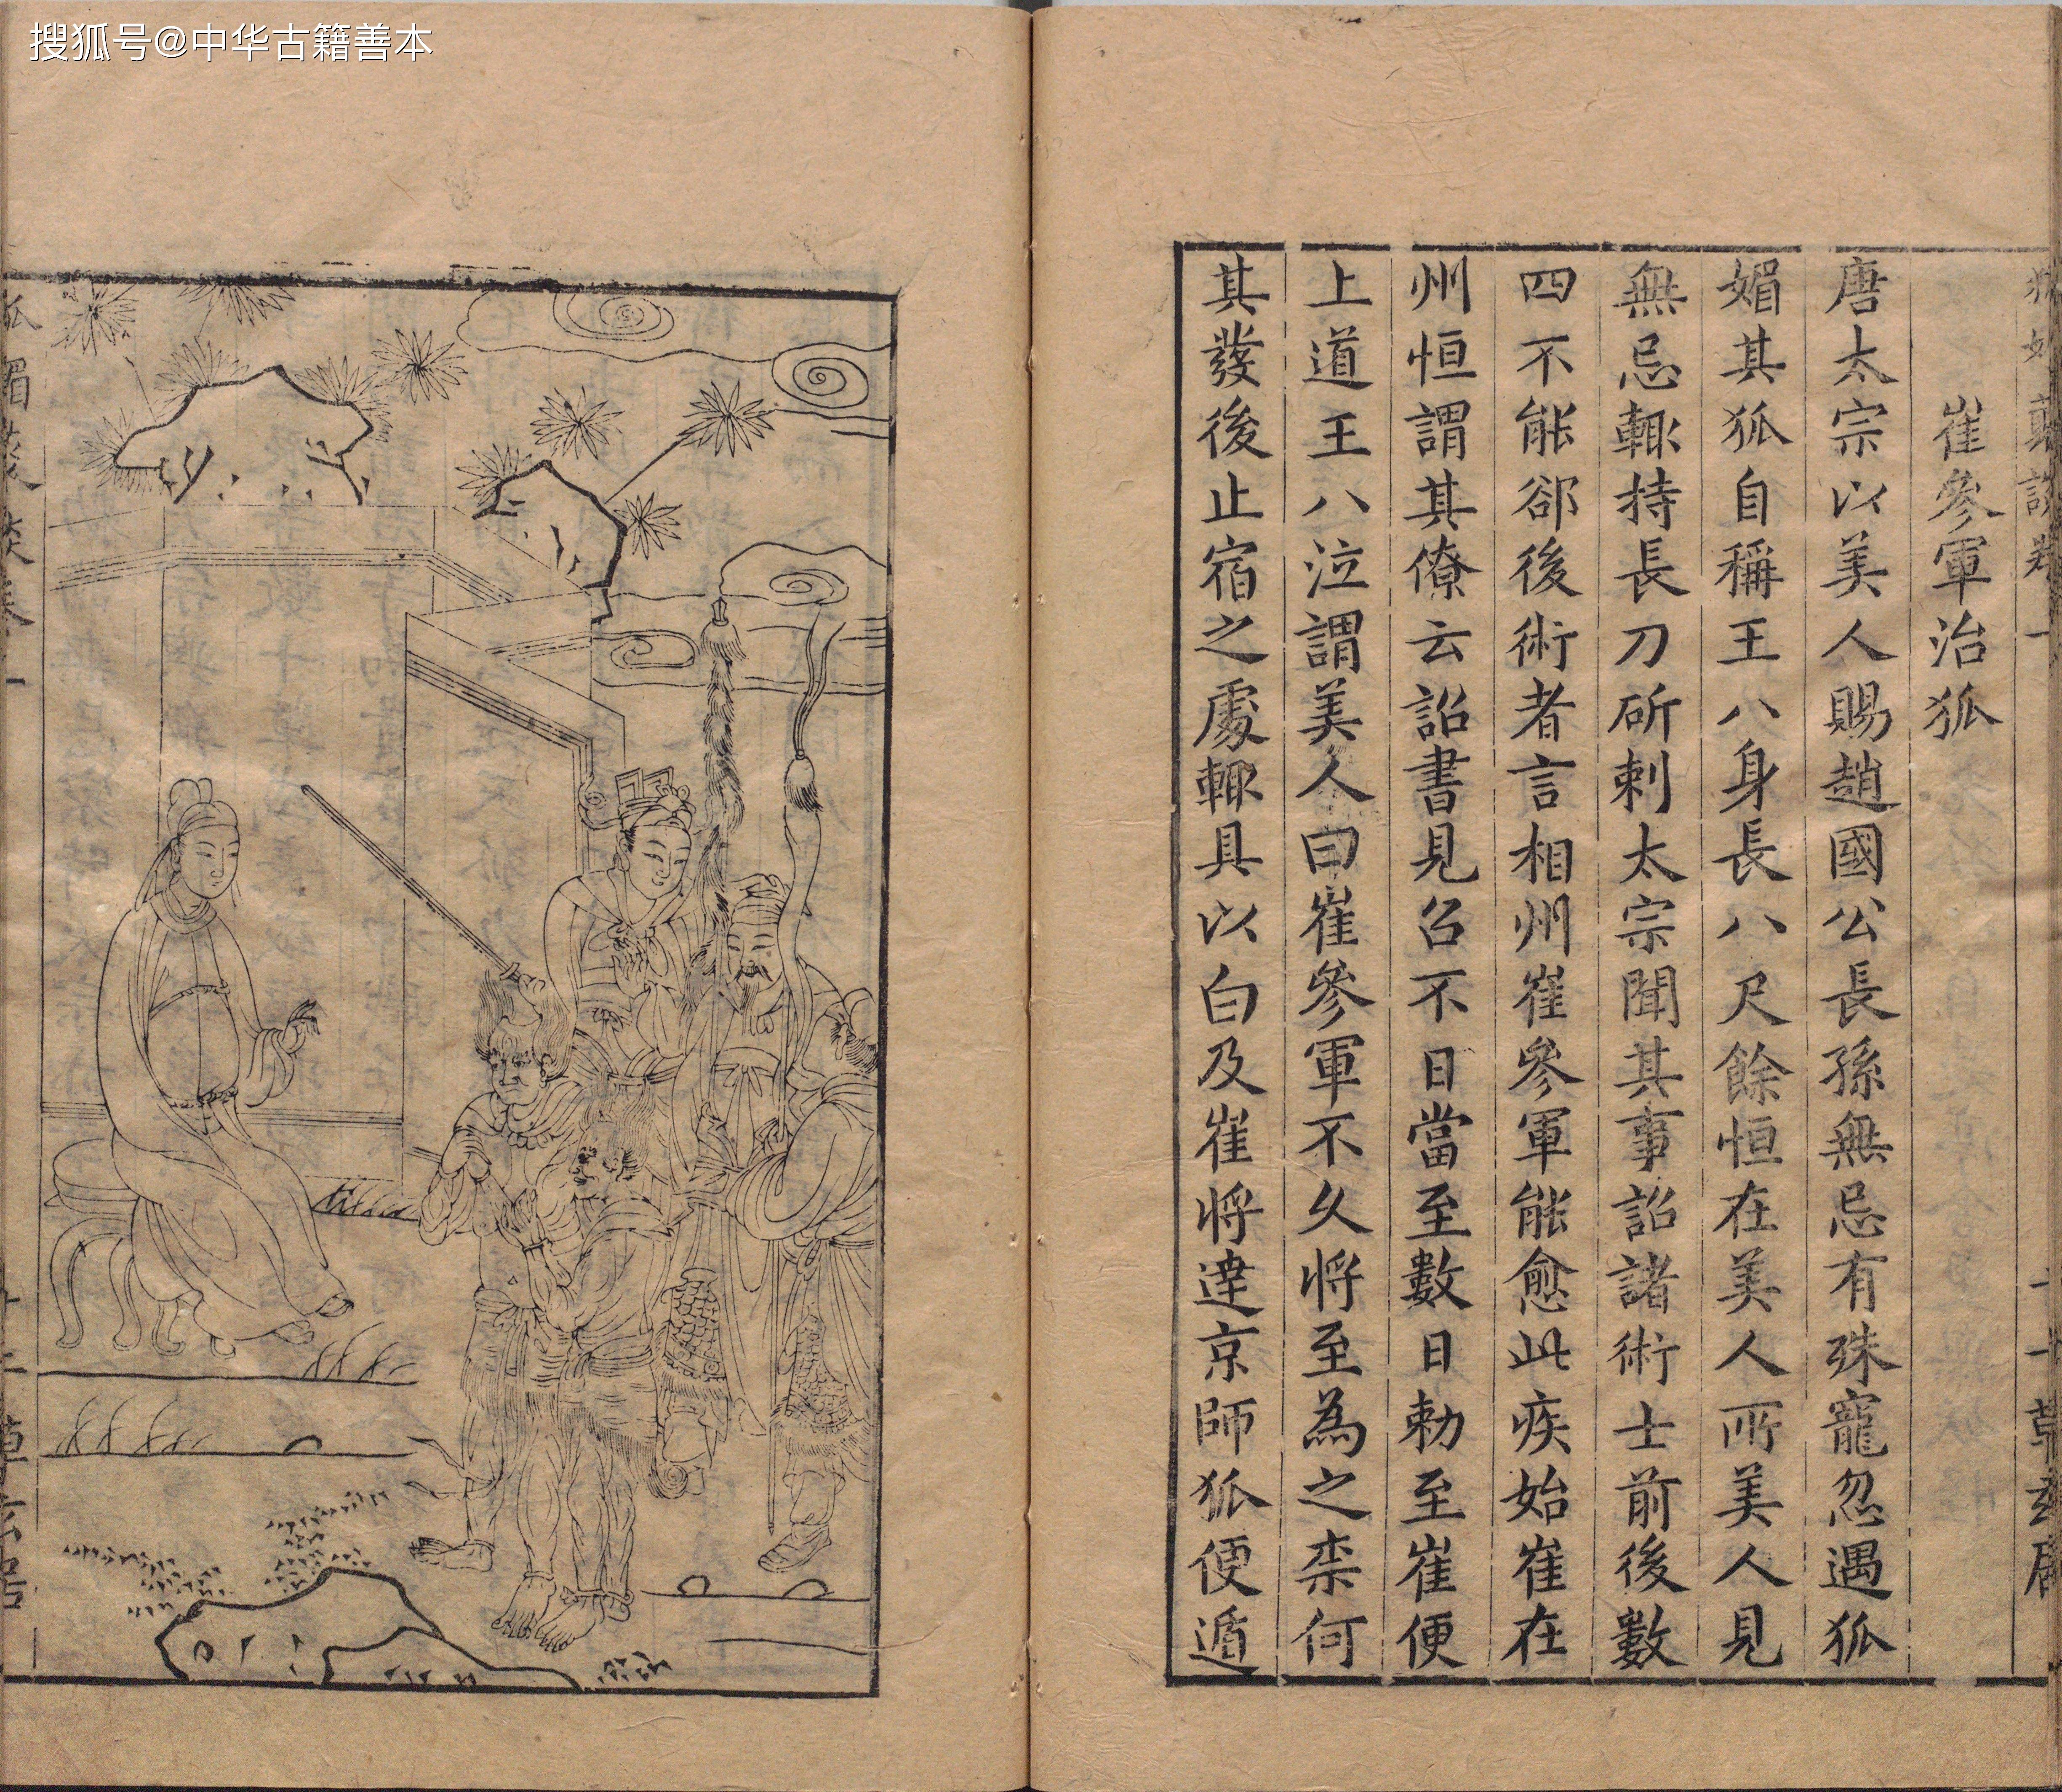 搜狐号@中华古籍善本
崔參軍治狐
唐太宗以美人賜趙國公長孫無忌有殊寵忽遇狐
媚其狐自稱王八身長八尺餘恒在美人所美人見
無忌輙持長刀斫刺太宗聞其事詔諸術士前後數
四不能郤後術者言相州崔參軍能愈此疾始崔在
州恒謂其僚云詔書見召不日當至數日勅至崔便
上道王八泣謂美人曰崔參軍不久將至為之柰何
其發後止宿之處輙具以白及崔將達京師狐便遁
狐媚叢談卷一